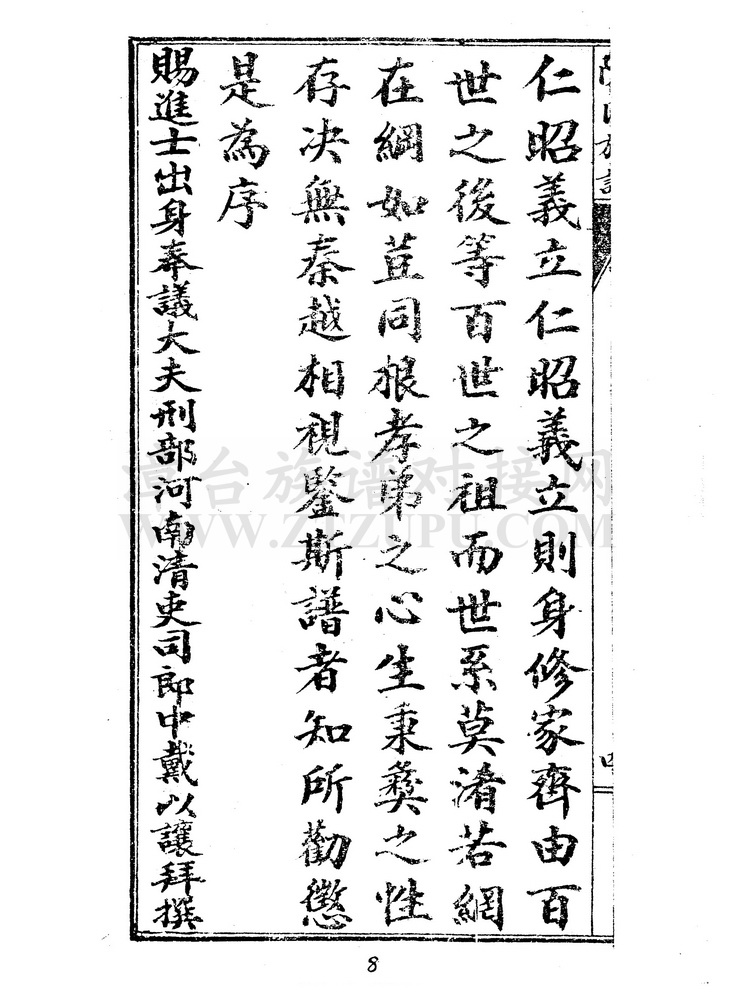 仁昭義立仁昭義立則身修家齊由百
世之後等百世之祖而世系莫淆若網
在綱如荳同根孝弟之心生秉彜之性
存决無秦越相視鑒斯譜者知所勸懲
是為序
賜進士出身奉議大夫刑部河南清吏司郎中戴以讓拜撰
章台族谱对接网
WWW.ZTZUPU.COM
8